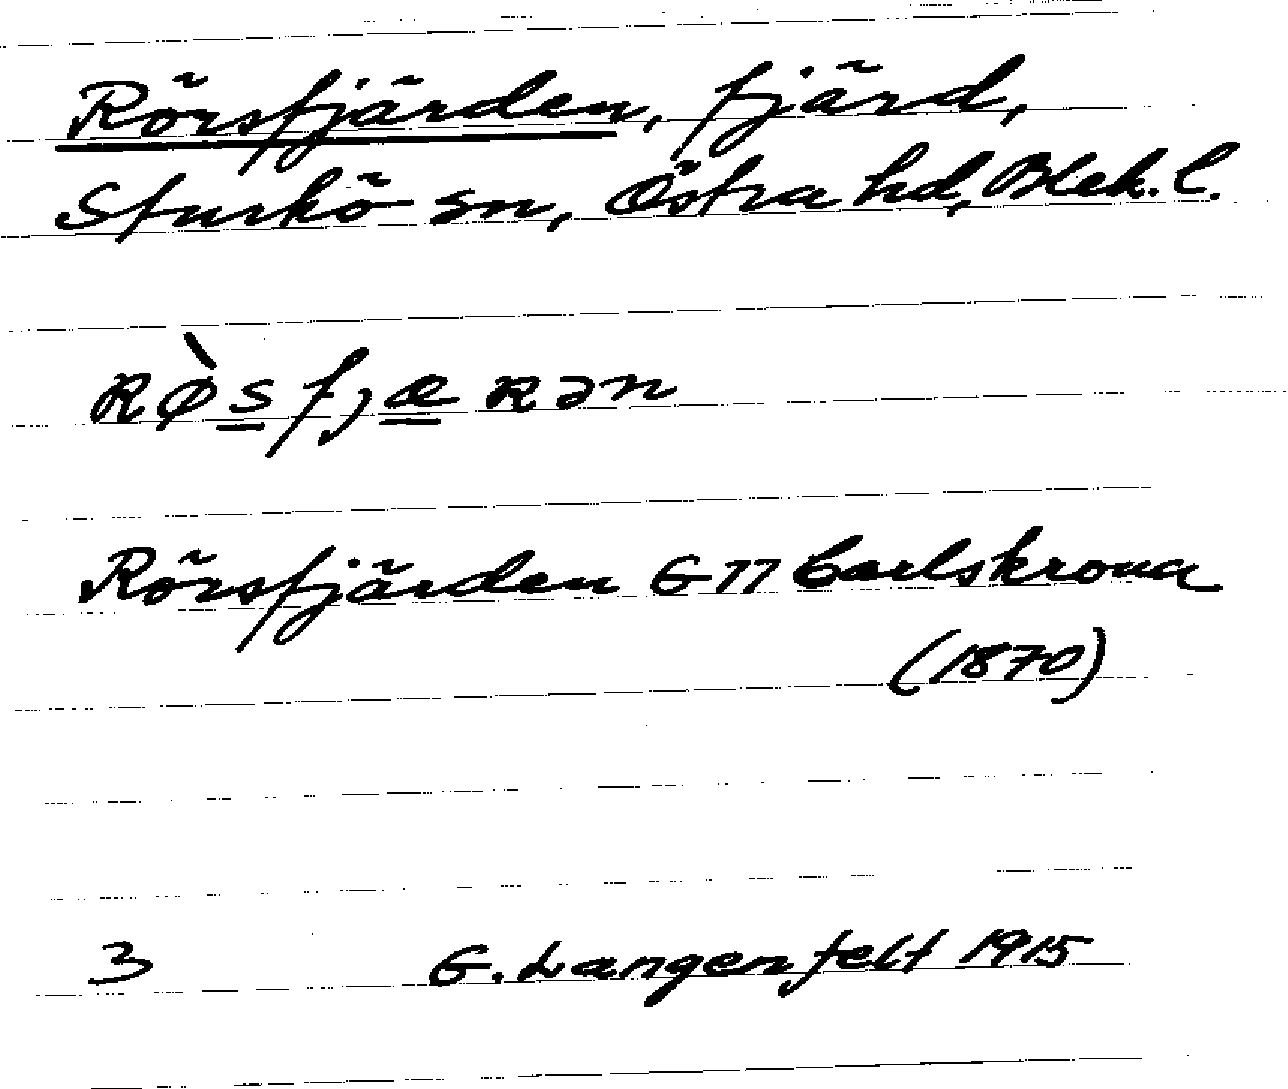 Rörsfjärden, fjärd,
Sturkö sn, Östra hd, Blek. l.
Rø̀sfjæRən
Rörsfjärden G 77 Carlskrona
(1870)
3 G. Langenfelt 1915